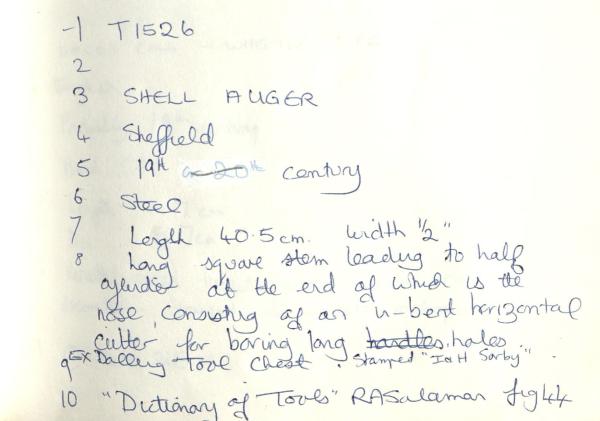 -1 T1526
2
3 SHELL AUGER
4 Sheffield
5 19th or 20th century
6 Steel
7 Length 40.5cm. width 1/2"
8 Long square stem leading to half
cylinder at the end of which is the
nose, consisting of an in-bent horizontal
cutter for boring long handles holes.
9 Ex Dalling Tool Chest. Stamped "I & H Sorby".
10 "Dictionary of Tools" RASalaman fig 44